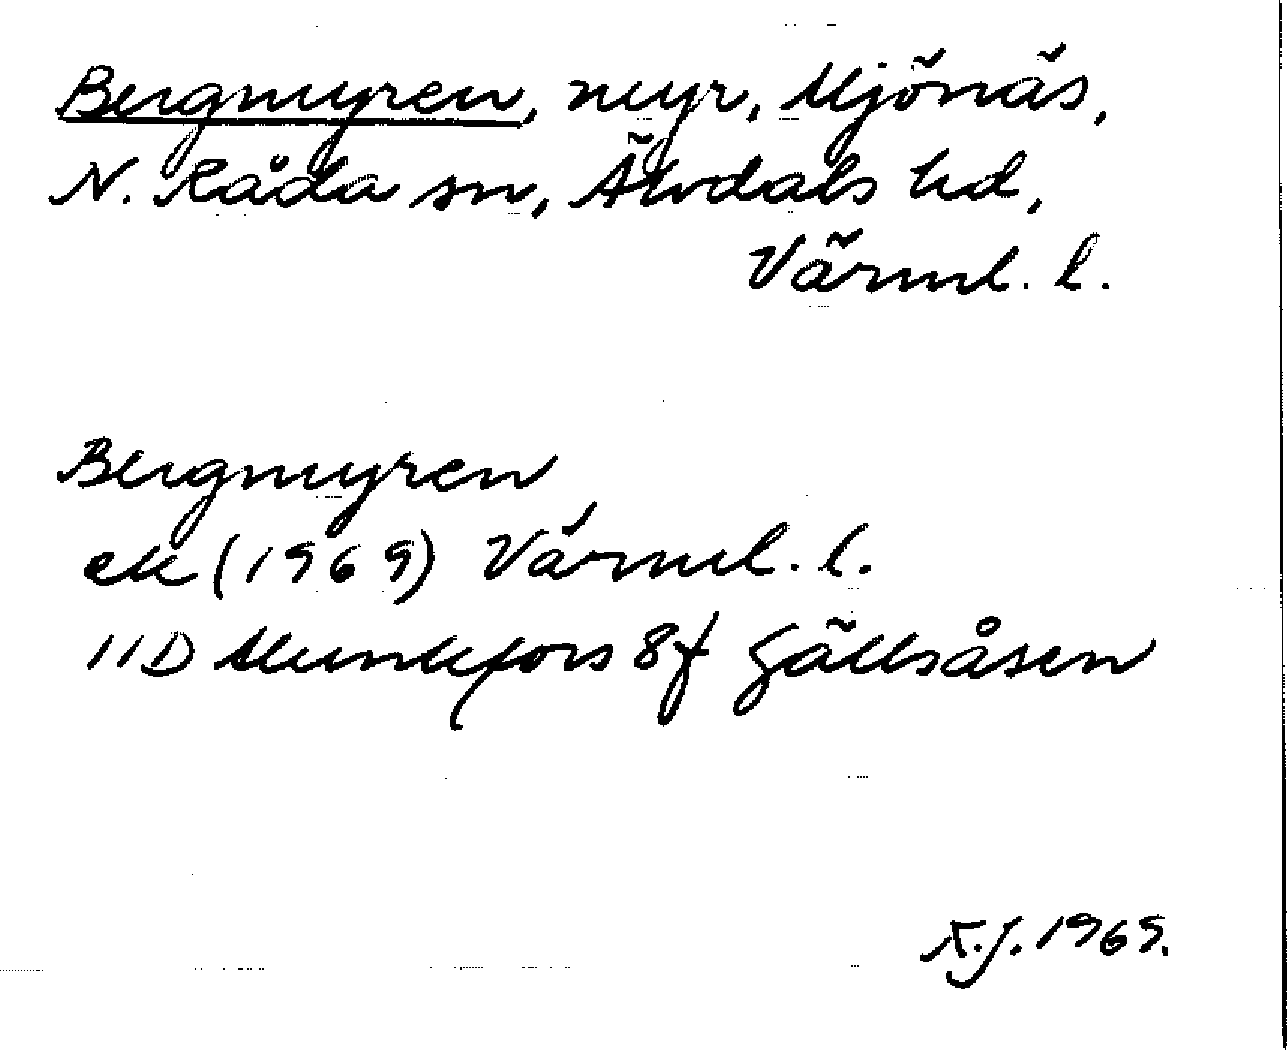 Bergmyren, myr, Mjönäs,
N. Råda sn, Älvdals hd,
Värml. l.
Bergmyren
ek (1969) Värml. l.
11D Munkfors 8f Gällsåsen
K.J. 1969.